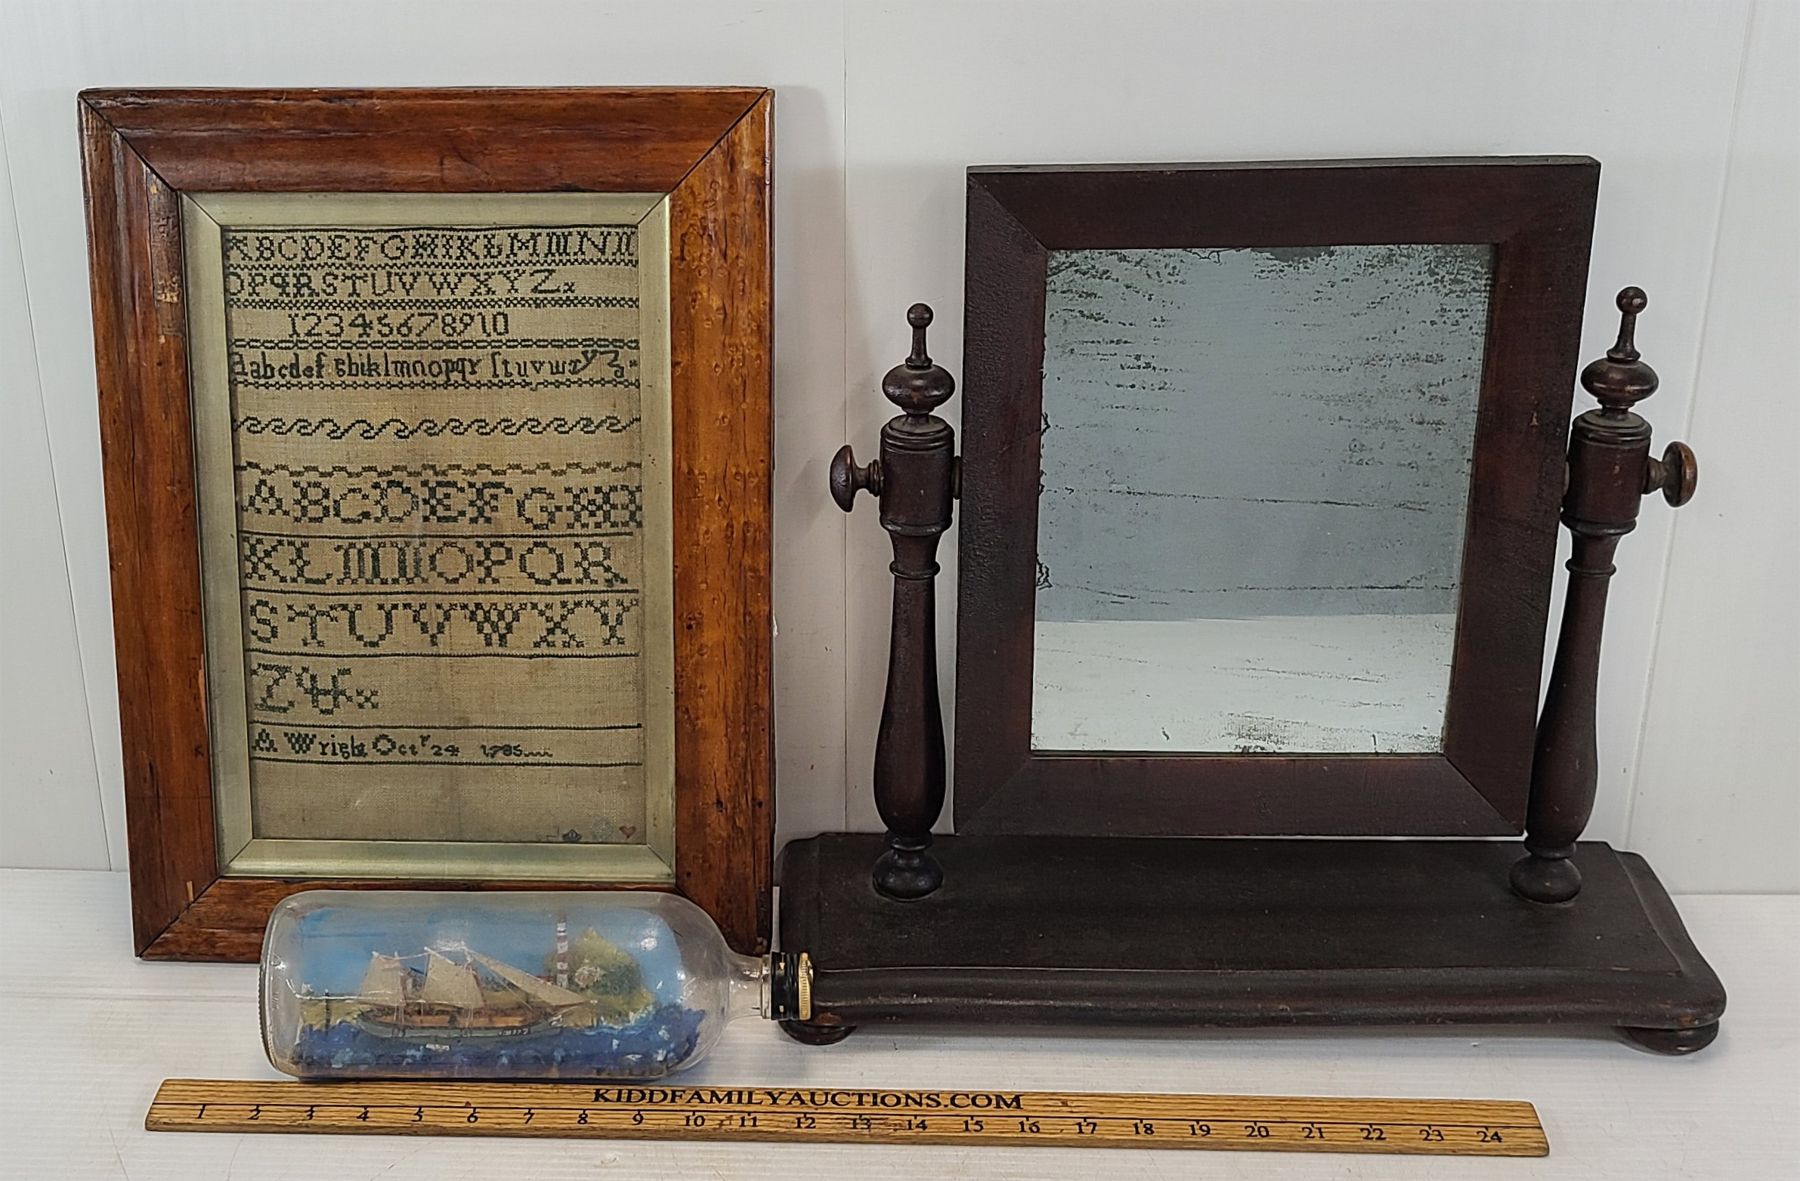 ABCDEFGHIKLMMNN
OPQRSTUVWXYZ
12345678910
Aabcdef ghiklmnopqr ſtuvwxyz
ABCDEFGHI
KLMNOPQR
STUVWXY
Z&
A Wright Octr 24 1785
KIDDFAMILYAUCTIONS.COM
1 2 3 4 5 6 7 8 9 10 11 12 13 14 15 16 17 18 19 20 21 22 23 24